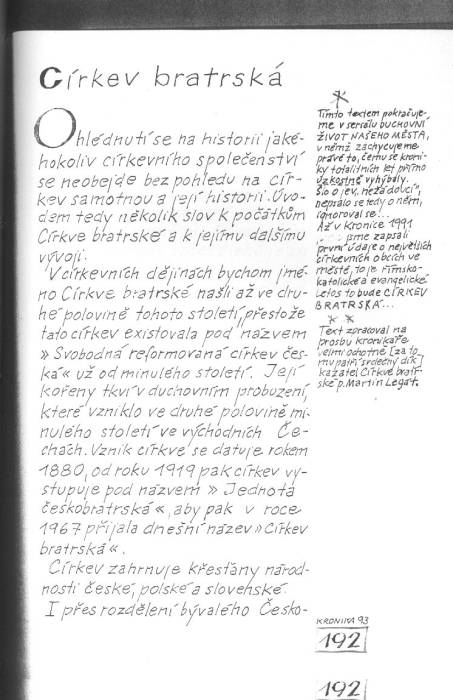 Církev bratrská
Ohlédnutí se na historii jaké-
hokoliv církevního společenství
se neobejde bez pohledu na cír-
kev samotnou a její historii. Úvo-
dem tedy několik slov k počátkům
Církve bratrské a k jejímu dalšímu
vývoji.
V církevních dějinách bychom jmé-
no Církve bratrské našli až ve dru-
hé polovině tohoto století, přestože
tato církev existovala pod názvem
» Svobodná reformovaná církev čes-
ká « už od minulého století. Její
kořeny tkví v duchovním probuzení,
které vzniklo ve druhé polovině mi-
nulého století ve východních Če-
chách. Vznik církve se datuje rokem
1880, od roku 1919 pak církev vy-
stupuje pod názvem » Jednota
českobratrská «, aby pak v roce
1967 přijala dnešní název » Církev
bratrská «.
Církev zahrnuje křesťany národ-
nosti české, polské a slovenské.
I přes rozdělení bývalého Česko-
Tímto textem pokračuje-
me v seriálu DUCHOVNÍ
ŽIVOT NAŠEHO MĚSTA,
v němž zachycujeme
právě to, čemu se kroni-
ky totalitních let přímo
úzkostně vyhýbaly.
Šlo o jev, nežádoucí,
nepsalo se tedy o něm,
ignoroval se...
Až v Kronice 1991
jsme zapsali
první údaje o největších
církevních obcích ve
městě, to je římsko-
katolické a evangelické.
Letos to bude CÍRKEV
BRATRSKÁ...
Text zpracoval na
prosbu kronikáře
velmi ochotně [za to
mu patří srdečný dík]
kazatel Církve bratr-
ské p. Martin Legát.
KRONIKA 93
192
192